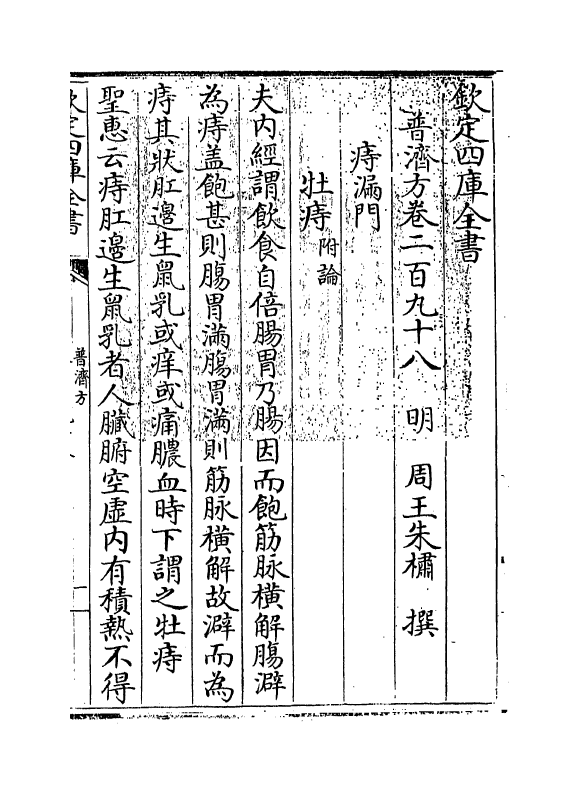 欽定四庫全書
普濟方卷二百九十八　明　周王朱橚　撰
痔漏門
牡痔附論
夫内經謂飲食自倍腸胃乃腸因而飽筋脉横解腸澼
為痔盖飽甚則腸胃滿腸胃滿則筋脉横解故澼而為
痔其狀肛邊生鼠乳或痒或痛膿血時下謂之牡痔
聖惠云痔肛邊生鼠乳者人臟腑空虚内有積熱不得
欽定四庫全書
普濟方
一